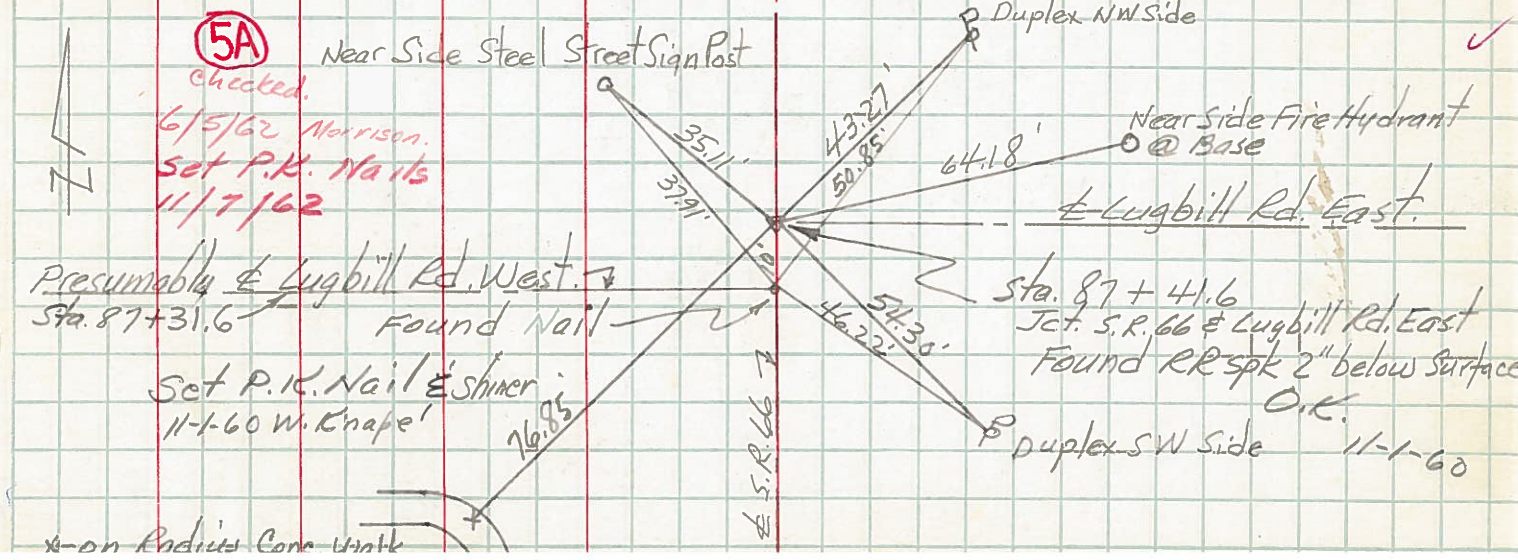 5A
Checked.
6/5/62 Morrison.
Set P.K. Nails
11/7/62
Near Side Steel Street Sign Post
Duplex NW Side
Near Side Fire Hydrant
@ Base
35.11'
37.91'
43.27'
50.85'
64.18'
℄ Lugbill Rd. East.
Presumably ℄ Lugbill Rd. West.
Sta. 87+31.6
Found Nail
10'
Sta. 87+41.6
Jct. S.R. 66 & Lugbill Rd. East
Found RR spk 2" below Surface
O.K.
11-1-60
54.30'
46.22'
Set P.K. Nail & Shiner
11-1-60 W. Knape
76.85
℄ S.R. 66
Duplex SW Side
x-on Radius Conc. Walk
N